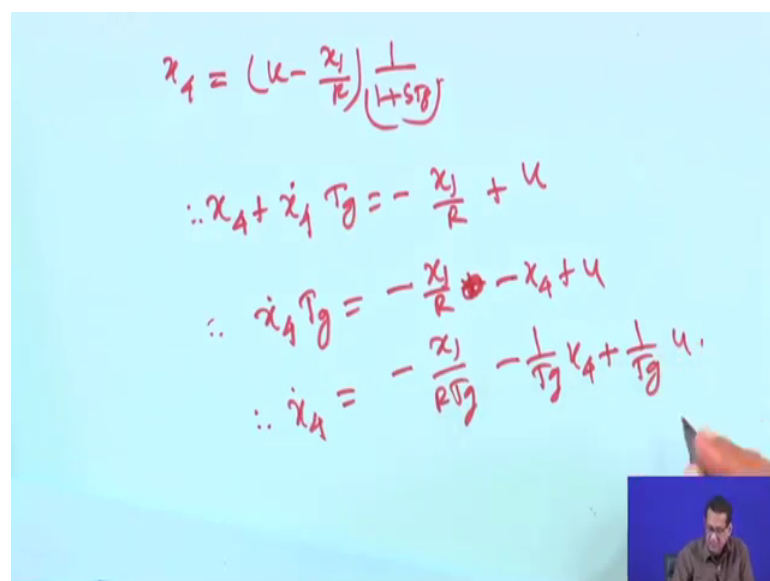 x₄ = (u - x₁/R) 1/(1+STg)
∴ x₄ + ẋ₄ Tg = - x₁/R + u
∴ ẋ₄ Tg = - x₁/R - x₄ + u
∴ ẋ₄ = - x₁/(RTg) - 1/Tg x₄ + 1/Tg u.